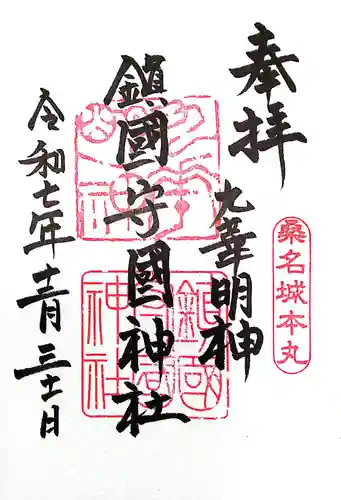 奉拝
桑名城本丸
九華明神
鎮國守國神社
令和七年十二月三十一日